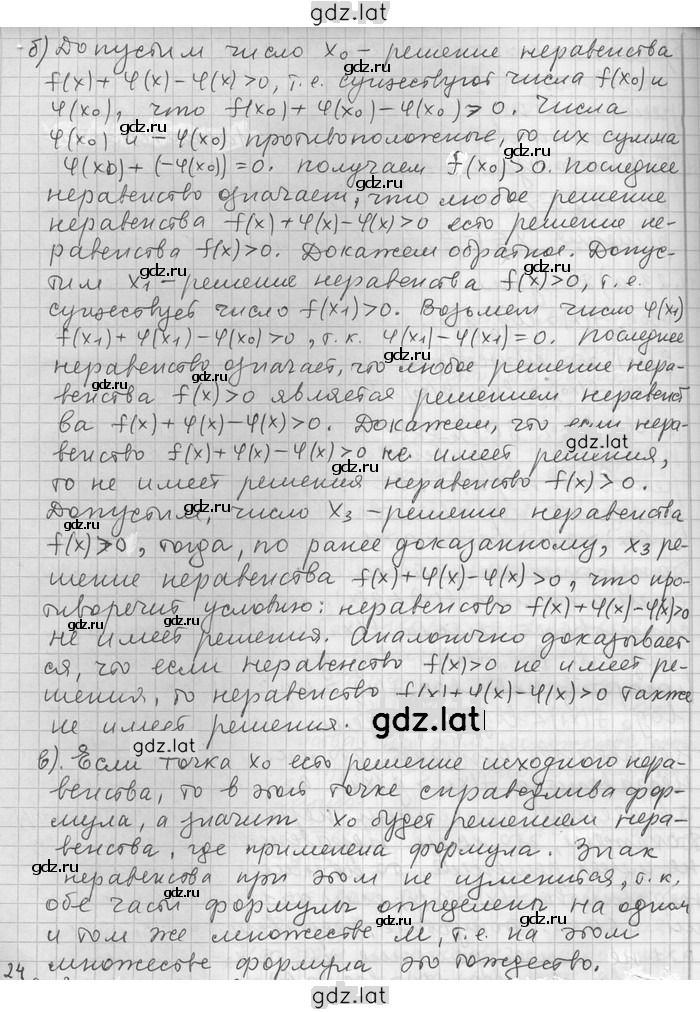 gdz.lat
б) Допустим число x₀ – решение неравенства
f(x) + φ(x) – φ(x) > 0, т.е. существуют числа f(x₀) и
φ(x₀), что f(x₀) + φ(x₀) – φ(x₀) > 0. Числа
φ(x₀) и – φ(x₀) противоположные, то их сумма
φ(x₀) + (–φ(x₀)) = 0. получаем f(x₀) > 0. Последнее
неравенство означает, что любое решение
неравенства f(x) + φ(x) – φ(x) > 0 есть решение не-
равенства f(x) > 0. Докажем обратное. Допус-
тим x₁ – решение неравенства f(x) > 0, т.е.
существует число f(x₁) > 0. Возьмем число φ(x₁)
f(x₁) + φ(x₁) – φ(x₀) > 0, т.к. φ(x₁) – φ(x₁) = 0. Последнее
неравенство означает, что любое решение нера-
венства f(x) > 0 является решением неравенст
ва f(x) + φ(x) – φ(x) > 0. Докажем, что если нера-
венство f(x) + φ(x) – φ(x) > 0 не имеет решения,
то не имеет решения неравенство f(x) > 0.
Допустим, число x₃ – решение неравенства
f(x) > 0, тогда, по ранее доказанному, x₃ ре-
шение неравенства f(x) + φ(x) – φ(x) > 0, что про-
тиворечит условию: неравенство f(x) + φ(x) – φ(x) > 0
не имеет решения. Аналогично доказывает
ся, что если неравенство f(x) > 0 не имеет ре-
шения, то неравенство f(x) + φ(x) – φ(x) > 0 также
не имеет решения. gdz.lat
в). Если точка x₀ есть решение исходного нера-
венства, то в этой точке справедлива фор-
мула, а значит x₀ будет решением нера-
венства, где применена формула. Знак
неравенства при этом не изменится, т.к.
обе части формулы определены на одном
и том же множестве М, т.е. на этом
24 множестве формула это тождество.
gdz.lat